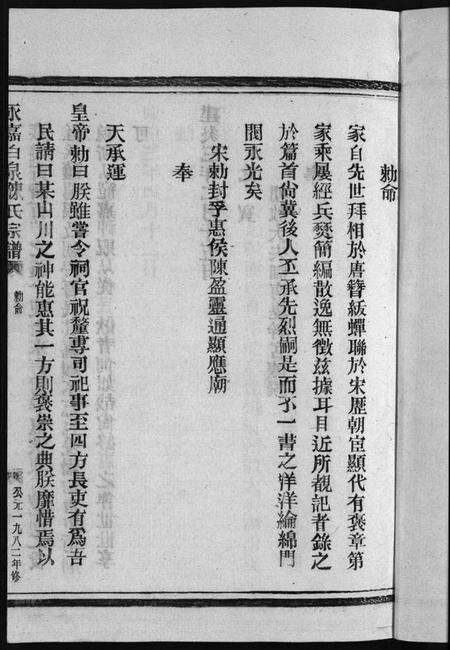 勅命
家自先世拜相於唐簪紱蟬聯於宋歷朝宦顯代有褒章第
家乘屢經兵燹簡編散逸無徵茲據耳目近所覩記者錄之
於篇首尚冀後人丕承先烈嗣是而不一書之洋洋綸綿門
閥永光矣
宋勅封孚惠侯陳盈靈通顯應廟
奉
天承運
皇帝勅曰朕雖嘗令祠官祝釐專司祀事至四方長吏有爲吾
民請曰某山川之神能惠其一方則褒崇之典朕靡惜焉以
永嘉白泉陳氏宗譜
勅命
公元一九八二年修